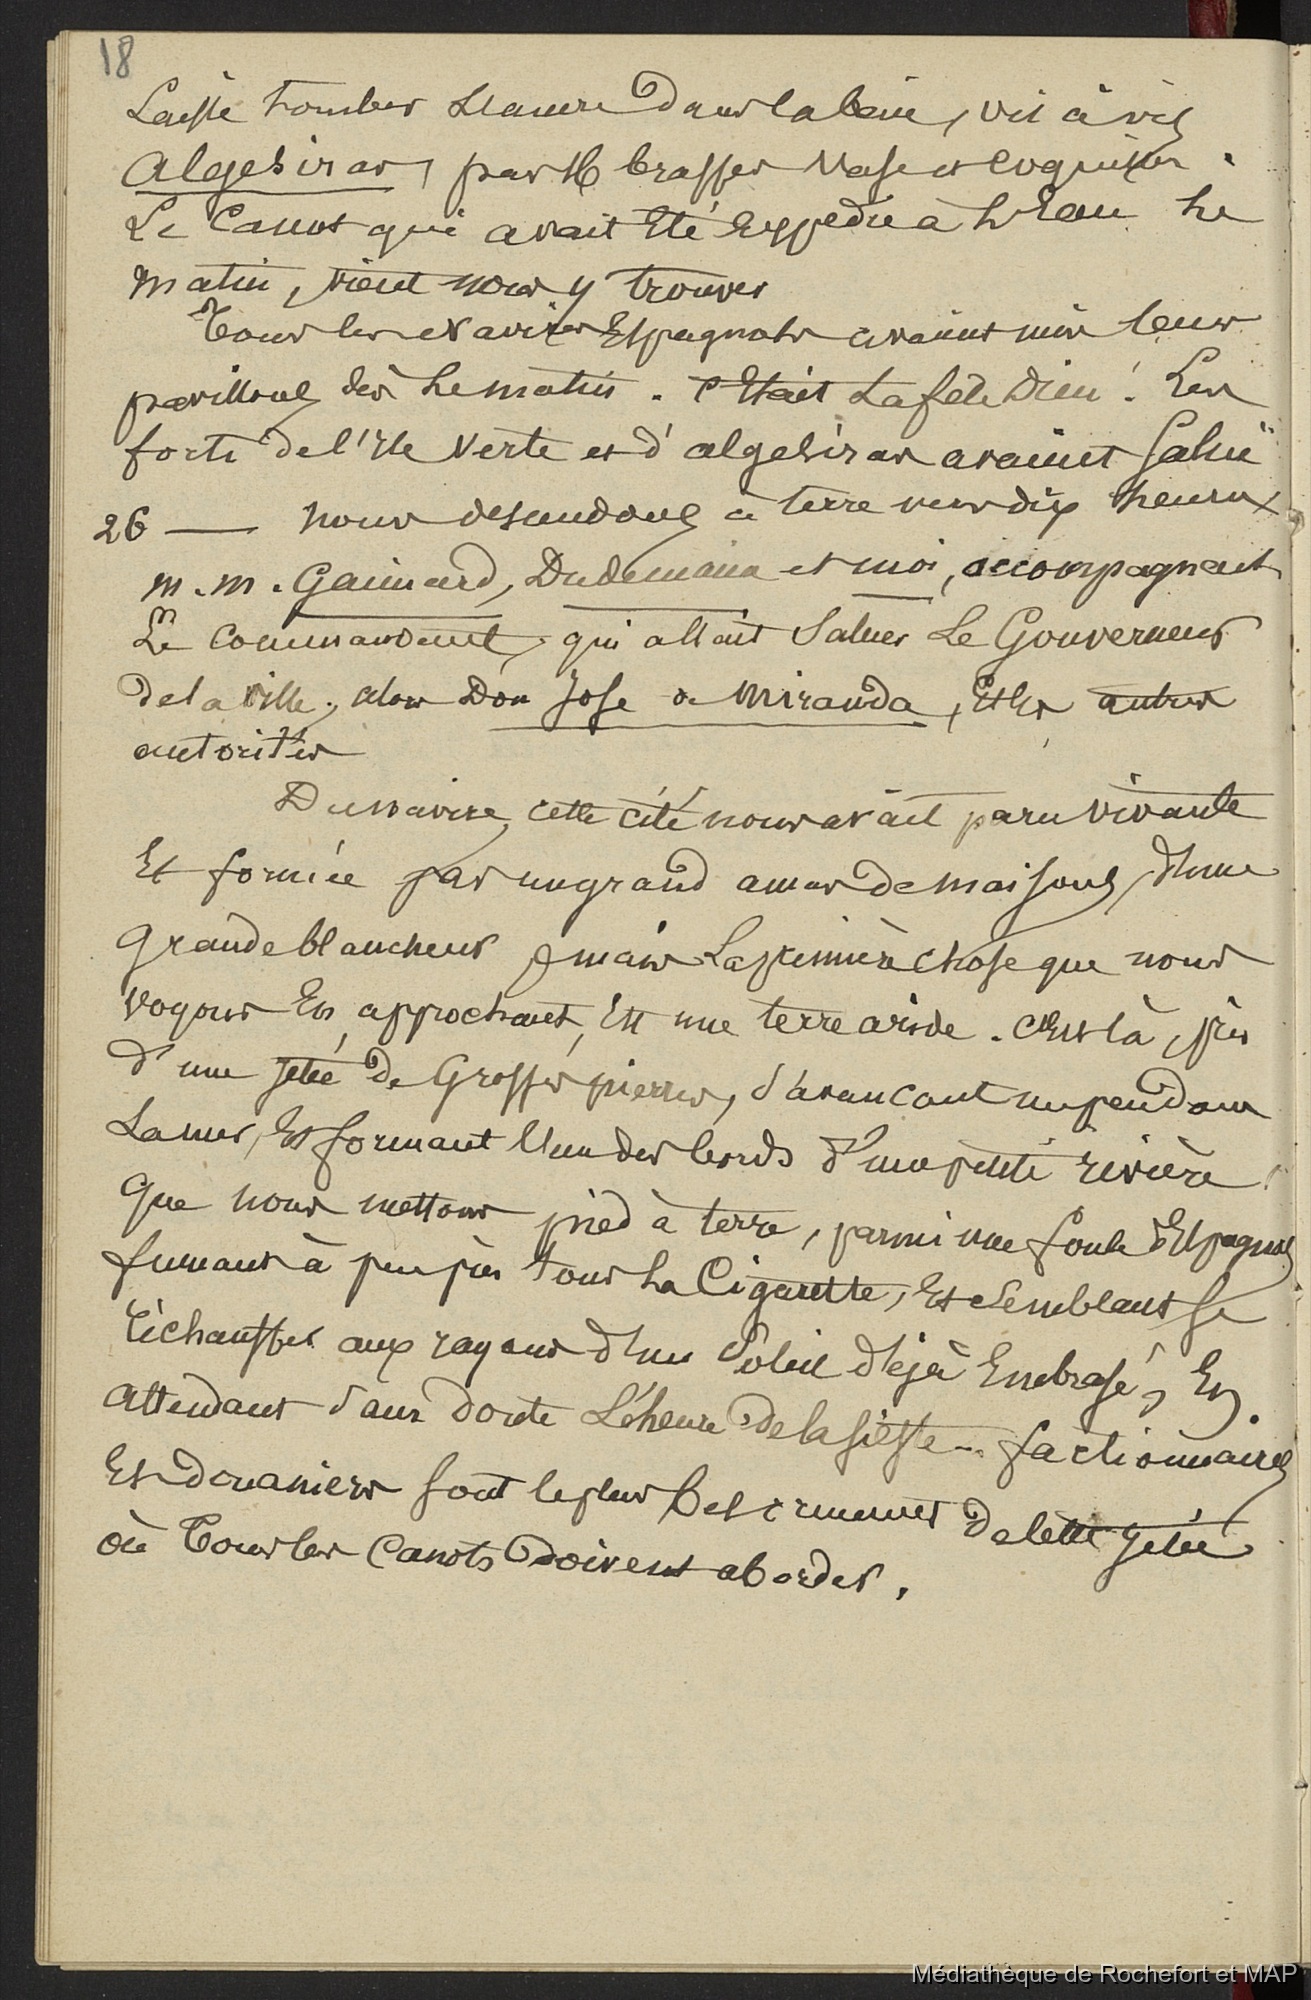 18
Laisse tomber L'ancre dans la baie, vis à vis
Algesiras, par brasses Vase et coquilles.
Le Canot qui avait Eté Expedié à L'Eau Le
matin, vient nous y trouver
Tous les Navires Espagnols avaient mis leurs
pavillons dès Le matin. C'Etait La fête Dieu! Les
forts de l'Ile Verte et d'algesiras avaient Salué
26 — nous descendons à terre vers dix heures
m.m. Gaimard, Dudemaine et moi, accompagnant
Le Commandant, qui allait Saluer Le Gouverneur
de la ville, alors Don Jose de Miranda, Et les autres
autorités
Du navire, cette cité nous avait paru vivante
Et formée par un grand amas de maisons, d'une
grande blancheur, mais La première chose que nous
voyons En approchant, Est une terre aride. C'Est là, près
d'une Jetée de Grosses pierres, s'avancant un peu dans
La mer, Et formant L'un des bords d'une petite rivière,
que nous mettons pied à terre, parmi une foule d'Espagnols
fumant à peu près tous La Cigarette, Et Semblant se
réchauffer aux rayons d'un Soleil déjà Embrasé, En
attendant Sans doute L'heure de la sieste... factionnaires
Et douaniers sont le plus bel ornement de cette Jetée
où Tous les Canots doivent aborder.
Médiathèque de Rochefort et MAP